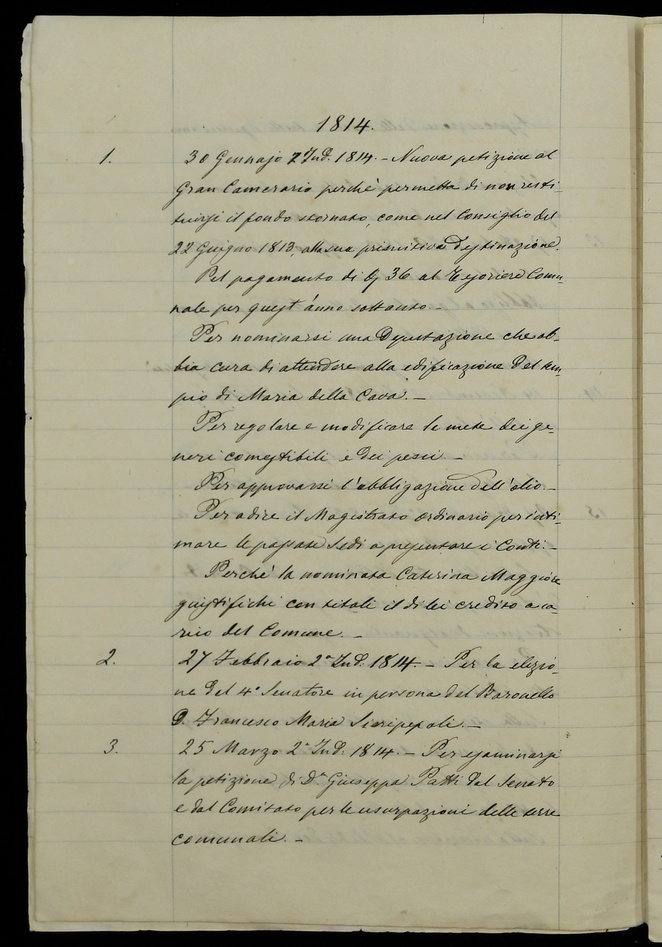 1814.
1. 30 Gennajo 2ª Ind. 1814. - Nuova petizione al
Gran Camerario perchè permetta di non resti-
tuirsi il fondo stornato, come nel Consiglio del
22 Giugno 1813, alla sua primitiva destinazione.
Pel pagamento di 36 al Tesoriere Comu-
nale per quest'anno soltanto -
Per nominarsi una Deputazione che ab-
bia cura di attendere alla edificazione del tem-
pio di Maria della Cava. -
Per regolare e modificare le mete dei ge-
neri comestibili e dei pesci -
Per approvarsi l'obbligazione dell'olio -
Per adire il Magistrato ordinario per inti-
mare le passate Sedi a presentare i Conti. -
Perchè la nominata Caterina Maggiore
giustifichi con titoli il di lei credito a ca-
rico del Comune. -
2. 27 Febbraio 2ª Ind. 1814. - Per la elezio-
ne del 4º Senatore in persona del Baronello
D. Francesco Maria -
3. 25 Marzo 2ª Ind. 1814. - Per esaminarsi
la petizione di Dª Giuseppa Patti dal Senato
e dal Comitato per le usurpazioni delle terre
comunali. -